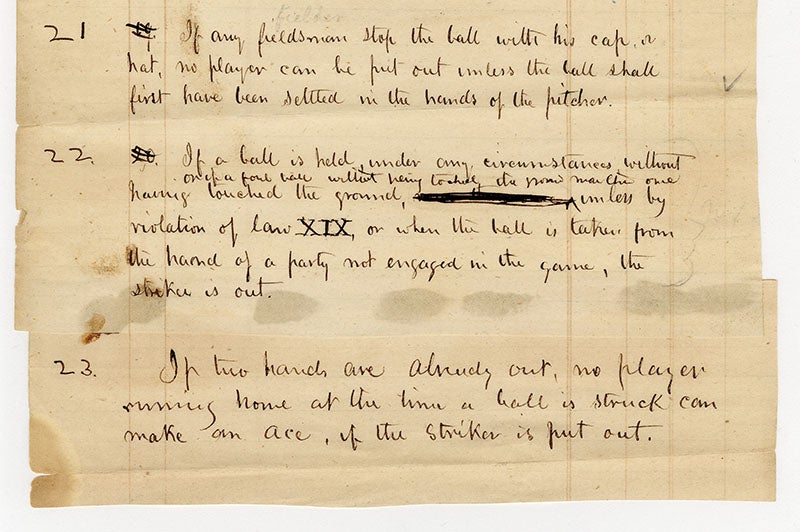 fielder
21 If any fieldsman stop the ball with his cap, or
hat, no player can be put out unless the ball shall
first have been settled in the hands of the pitcher.
22. If a ball is held, under any circumstances without
or if a foul ball without being touching the ground more than once
having touched the ground, unless by
violation of law XIX, or when the ball is taken from
the haond of a party not engaged in the game, the
striker is out.
23. If two hands are already out, no player
running home at the time a ball is struck can
make an ace, if the striker is put out.